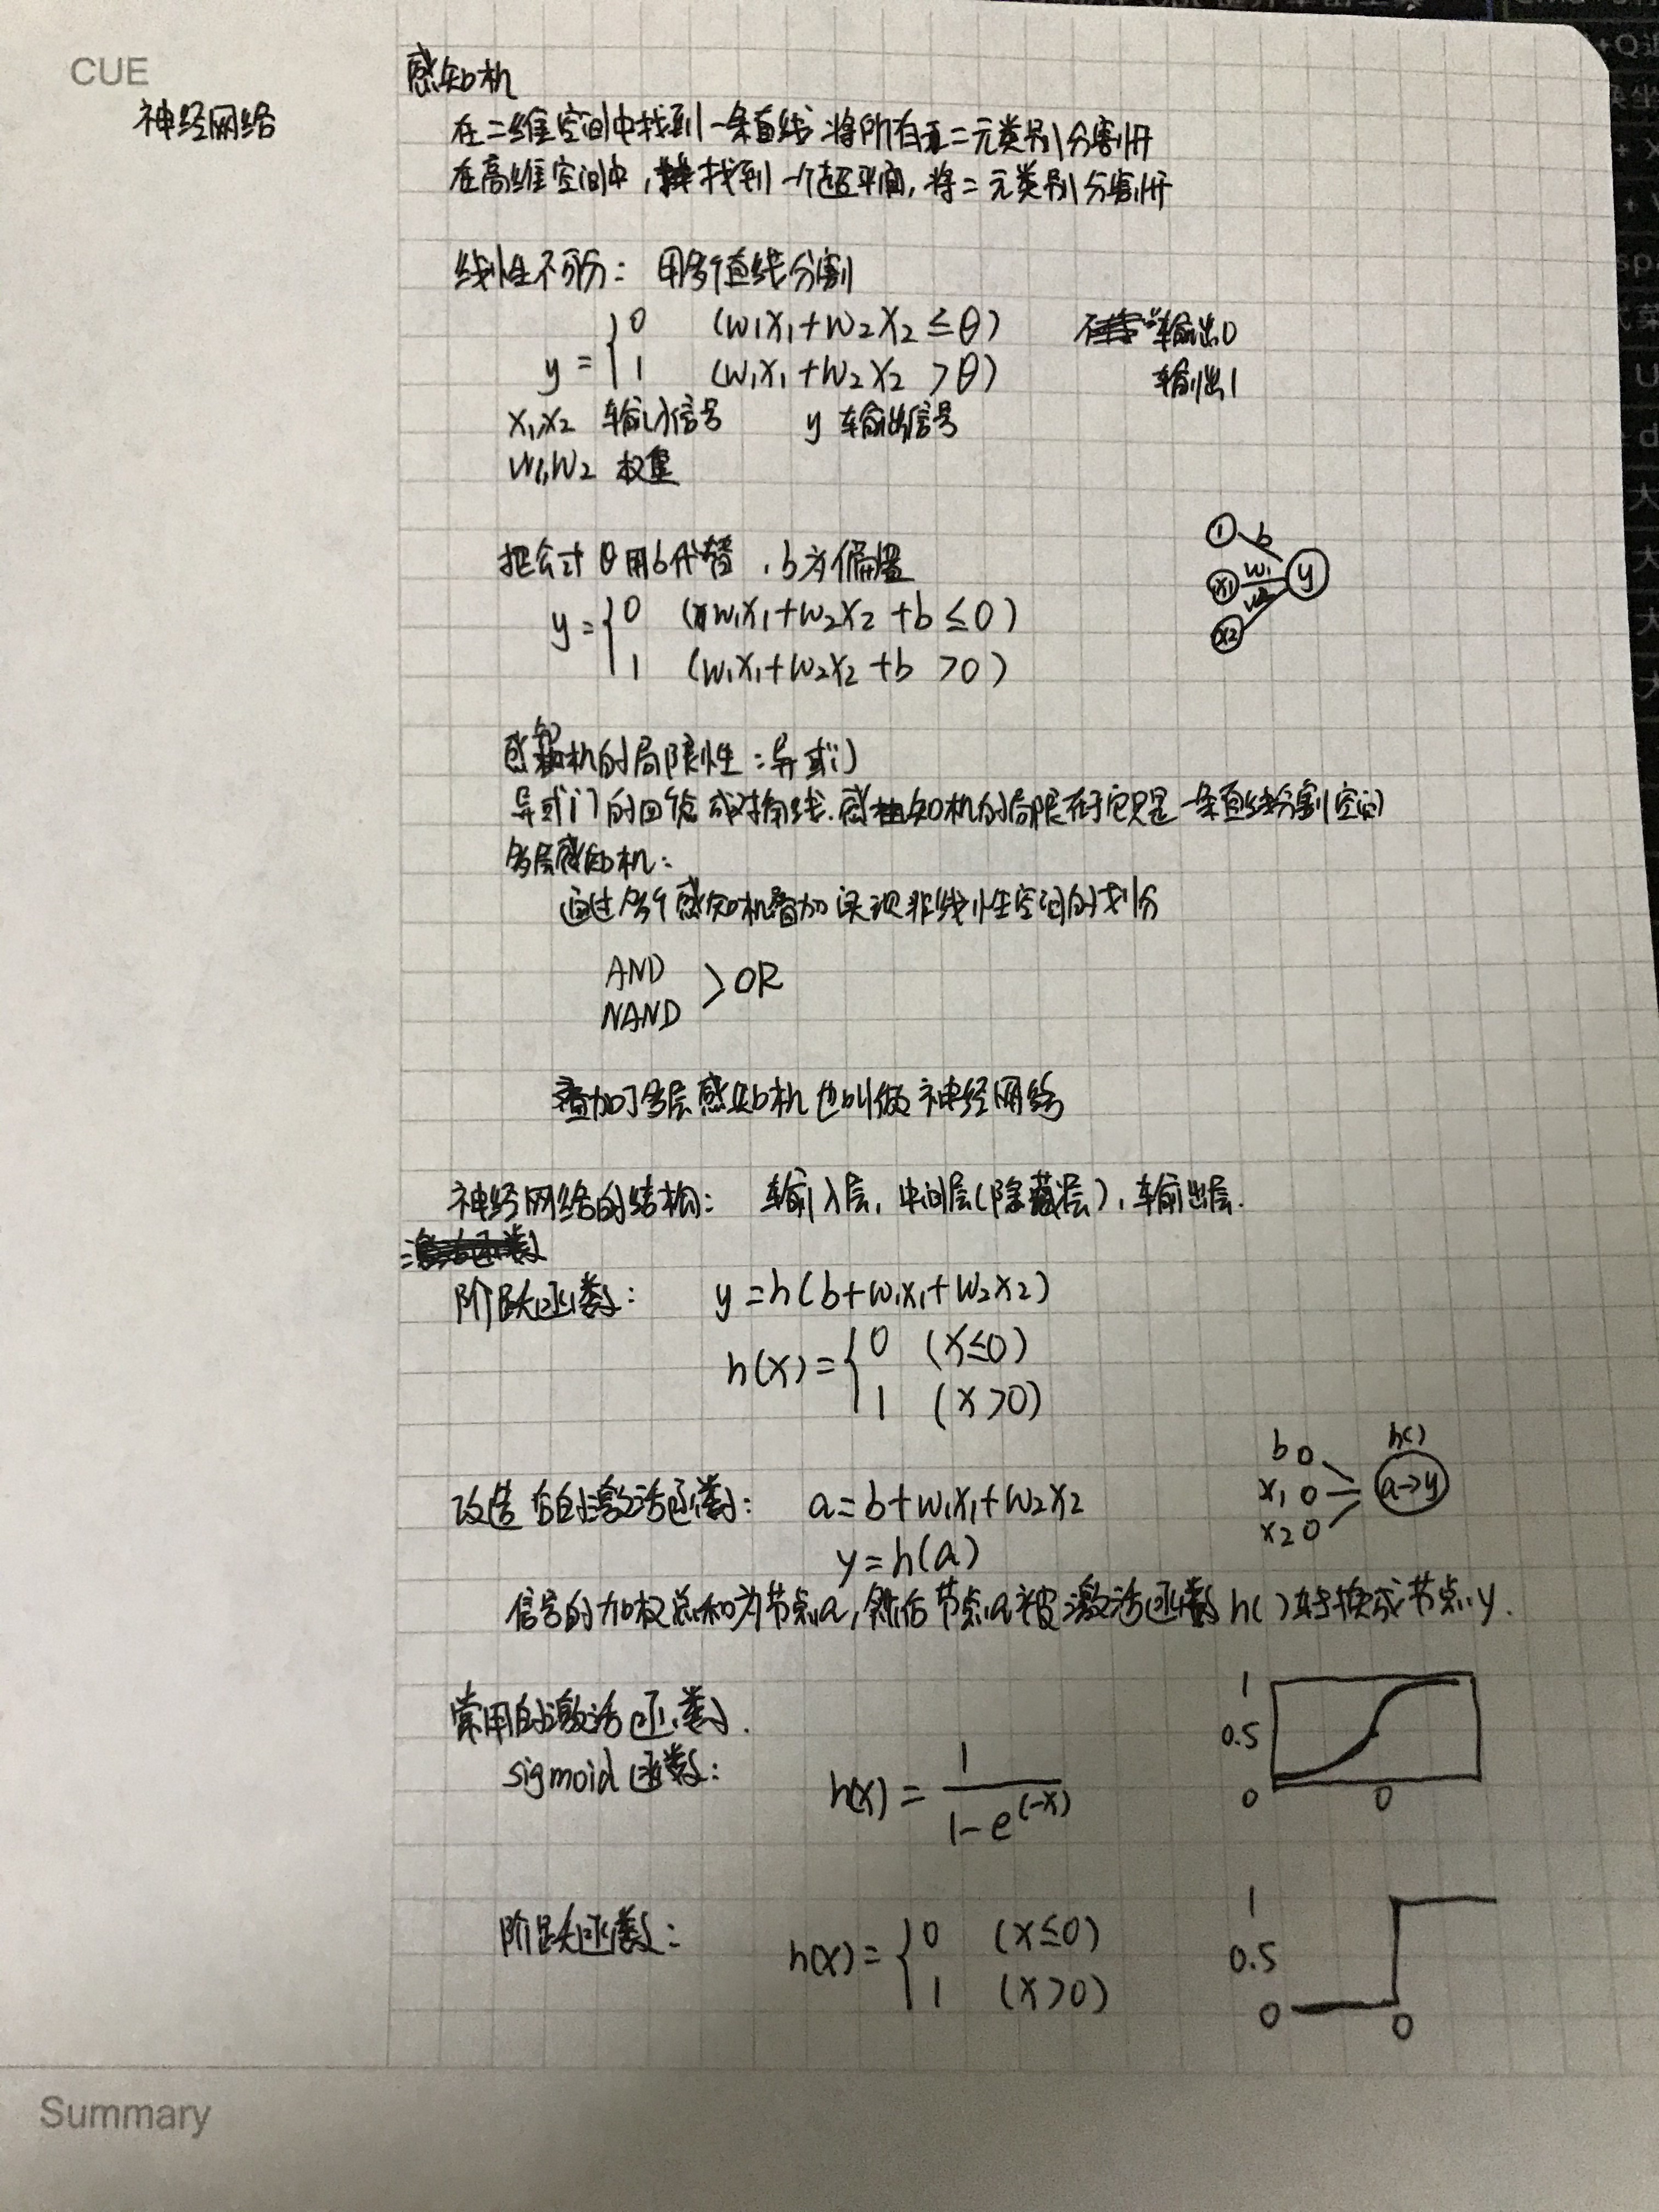 CUE
神经网络
感知机
在二维空间中找到一条直线 将所有二元类别分割开
在高维空间中,找到一个超平面,将二元类别分割开
线性不可分: 用多个直线分割
y = { 0 (w1x1+w2x2 ≤ θ) 输出0
1 (w1x1+w2x2 > θ) 输出1
x1,x2 输入信号 y 输出信号
w1,w2 权重
θ用b代替,b为偏置
① b
x1 w1 y
x2 w2
y = { 0 (w1x1+w2x2+b ≤ 0)
1 (w1x1+w2x2+b > 0)
感知机的局限性:异或门
异或门的 成对角线.感知机的局限在于它只是一条直线分割空间
多层感知机:
通过多个感知机叠加实现非线性空间的划分
AND
> OR
NAND
叠加了多层感知机也叫做神经网络
神经网络的结构: 输入层,中间层(隐藏层),输出层.
阶跃函数: y=h(b+w1x1+w2x2)
h(x)= { 0 (x≤0)
1 (x>0)
改造后的激活函数: a=b+w1x1+w2x2
y=h(a)
b
x1
x2
h()
a→y
信号的加权总和为节点a,然后节点a被激活函数h()转换成节点y.
常用的激活函数.
sigmoid函数: h(x) = 1 / 1-e^(-x)
1
0.5
0 0
阶跃函数: h(x)= { 0 (x≤0)
1 (x>0)
1
0.5
0 0
Summary